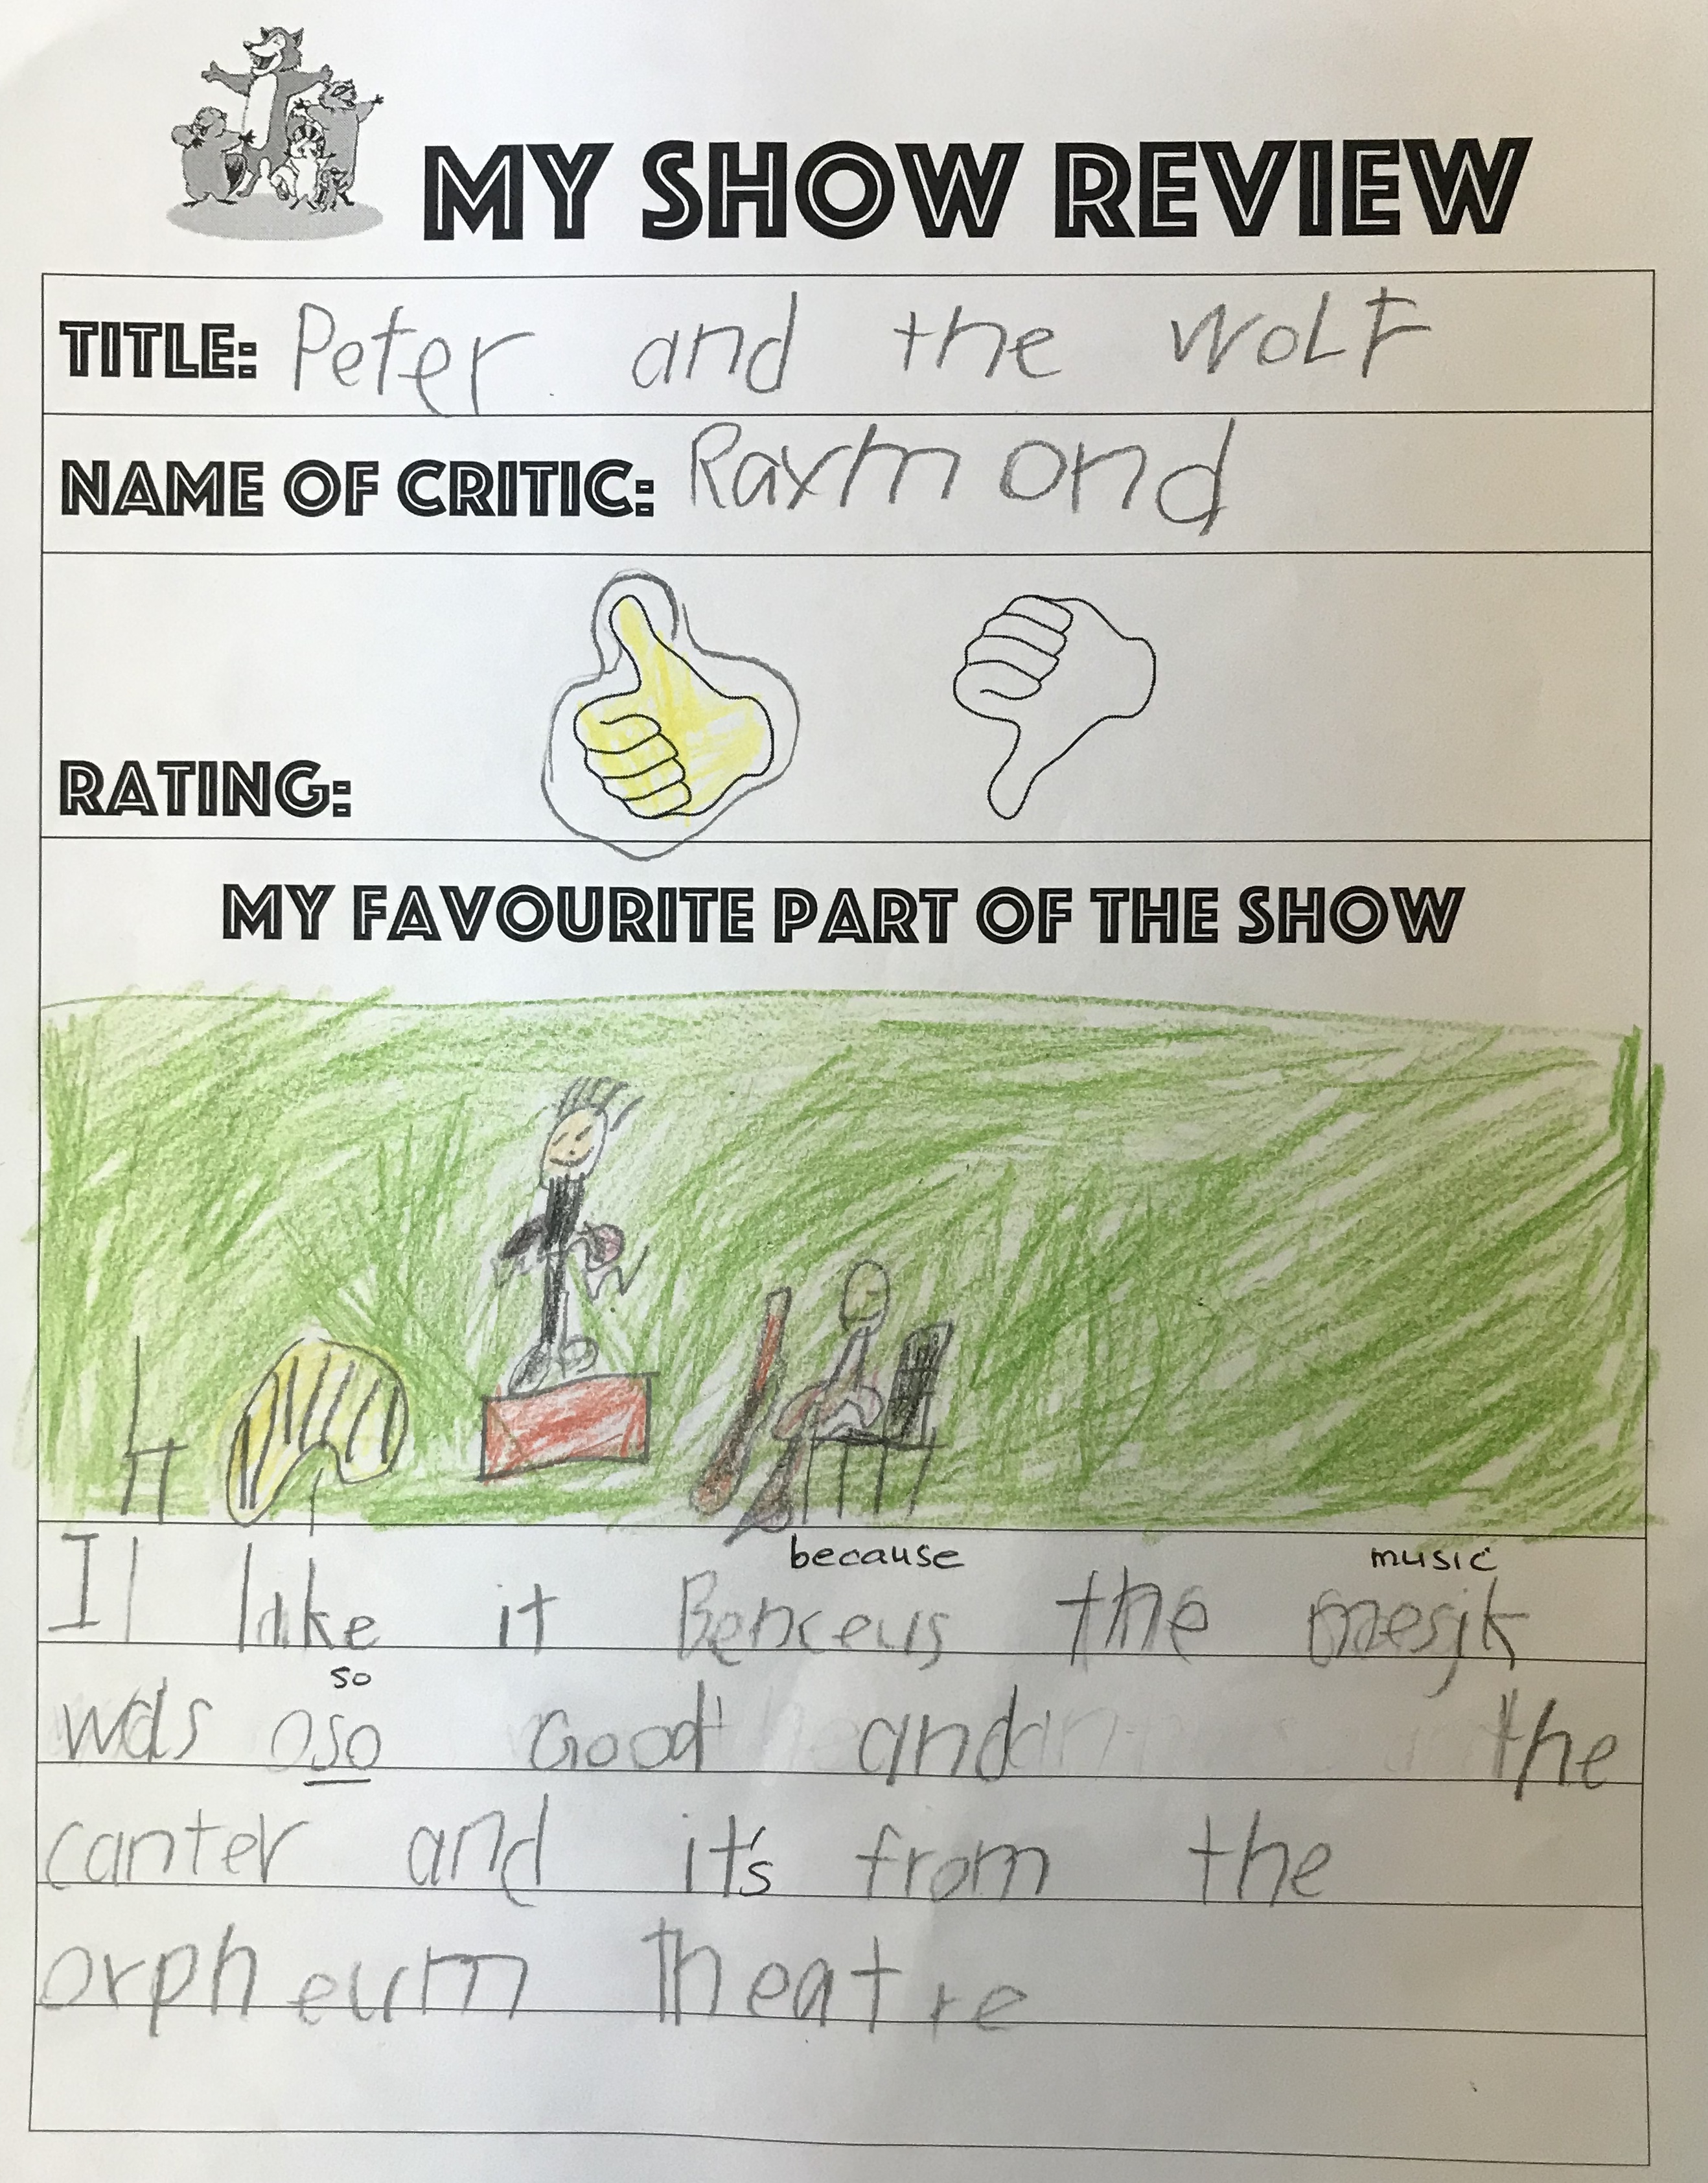 MY SHOW REVIEW
TITLE: Peter and the WOLF
NAME OF CRITIC: Raymond
RATING:
MY FAVOURITE PART OF THE SHOW
because music
I like it Benceus the mesik
so
was oso Good and the
canter and it's from the
orpheum Theatre